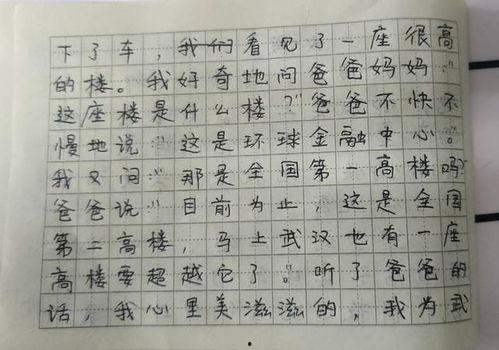 下了车，我们看见了一座很高
的楼。我好奇地问爸爸妈妈："
这座楼是什么楼？"爸爸不快不
慢地说："这是环球金融中心。"
我又问："那是全国第一高楼吗？"
爸爸说："目前为止，这是全国
第二高楼，马上武汉也有一座
高楼要超越它了。"听了爸爸的
话，我心里美滋滋的，我为武